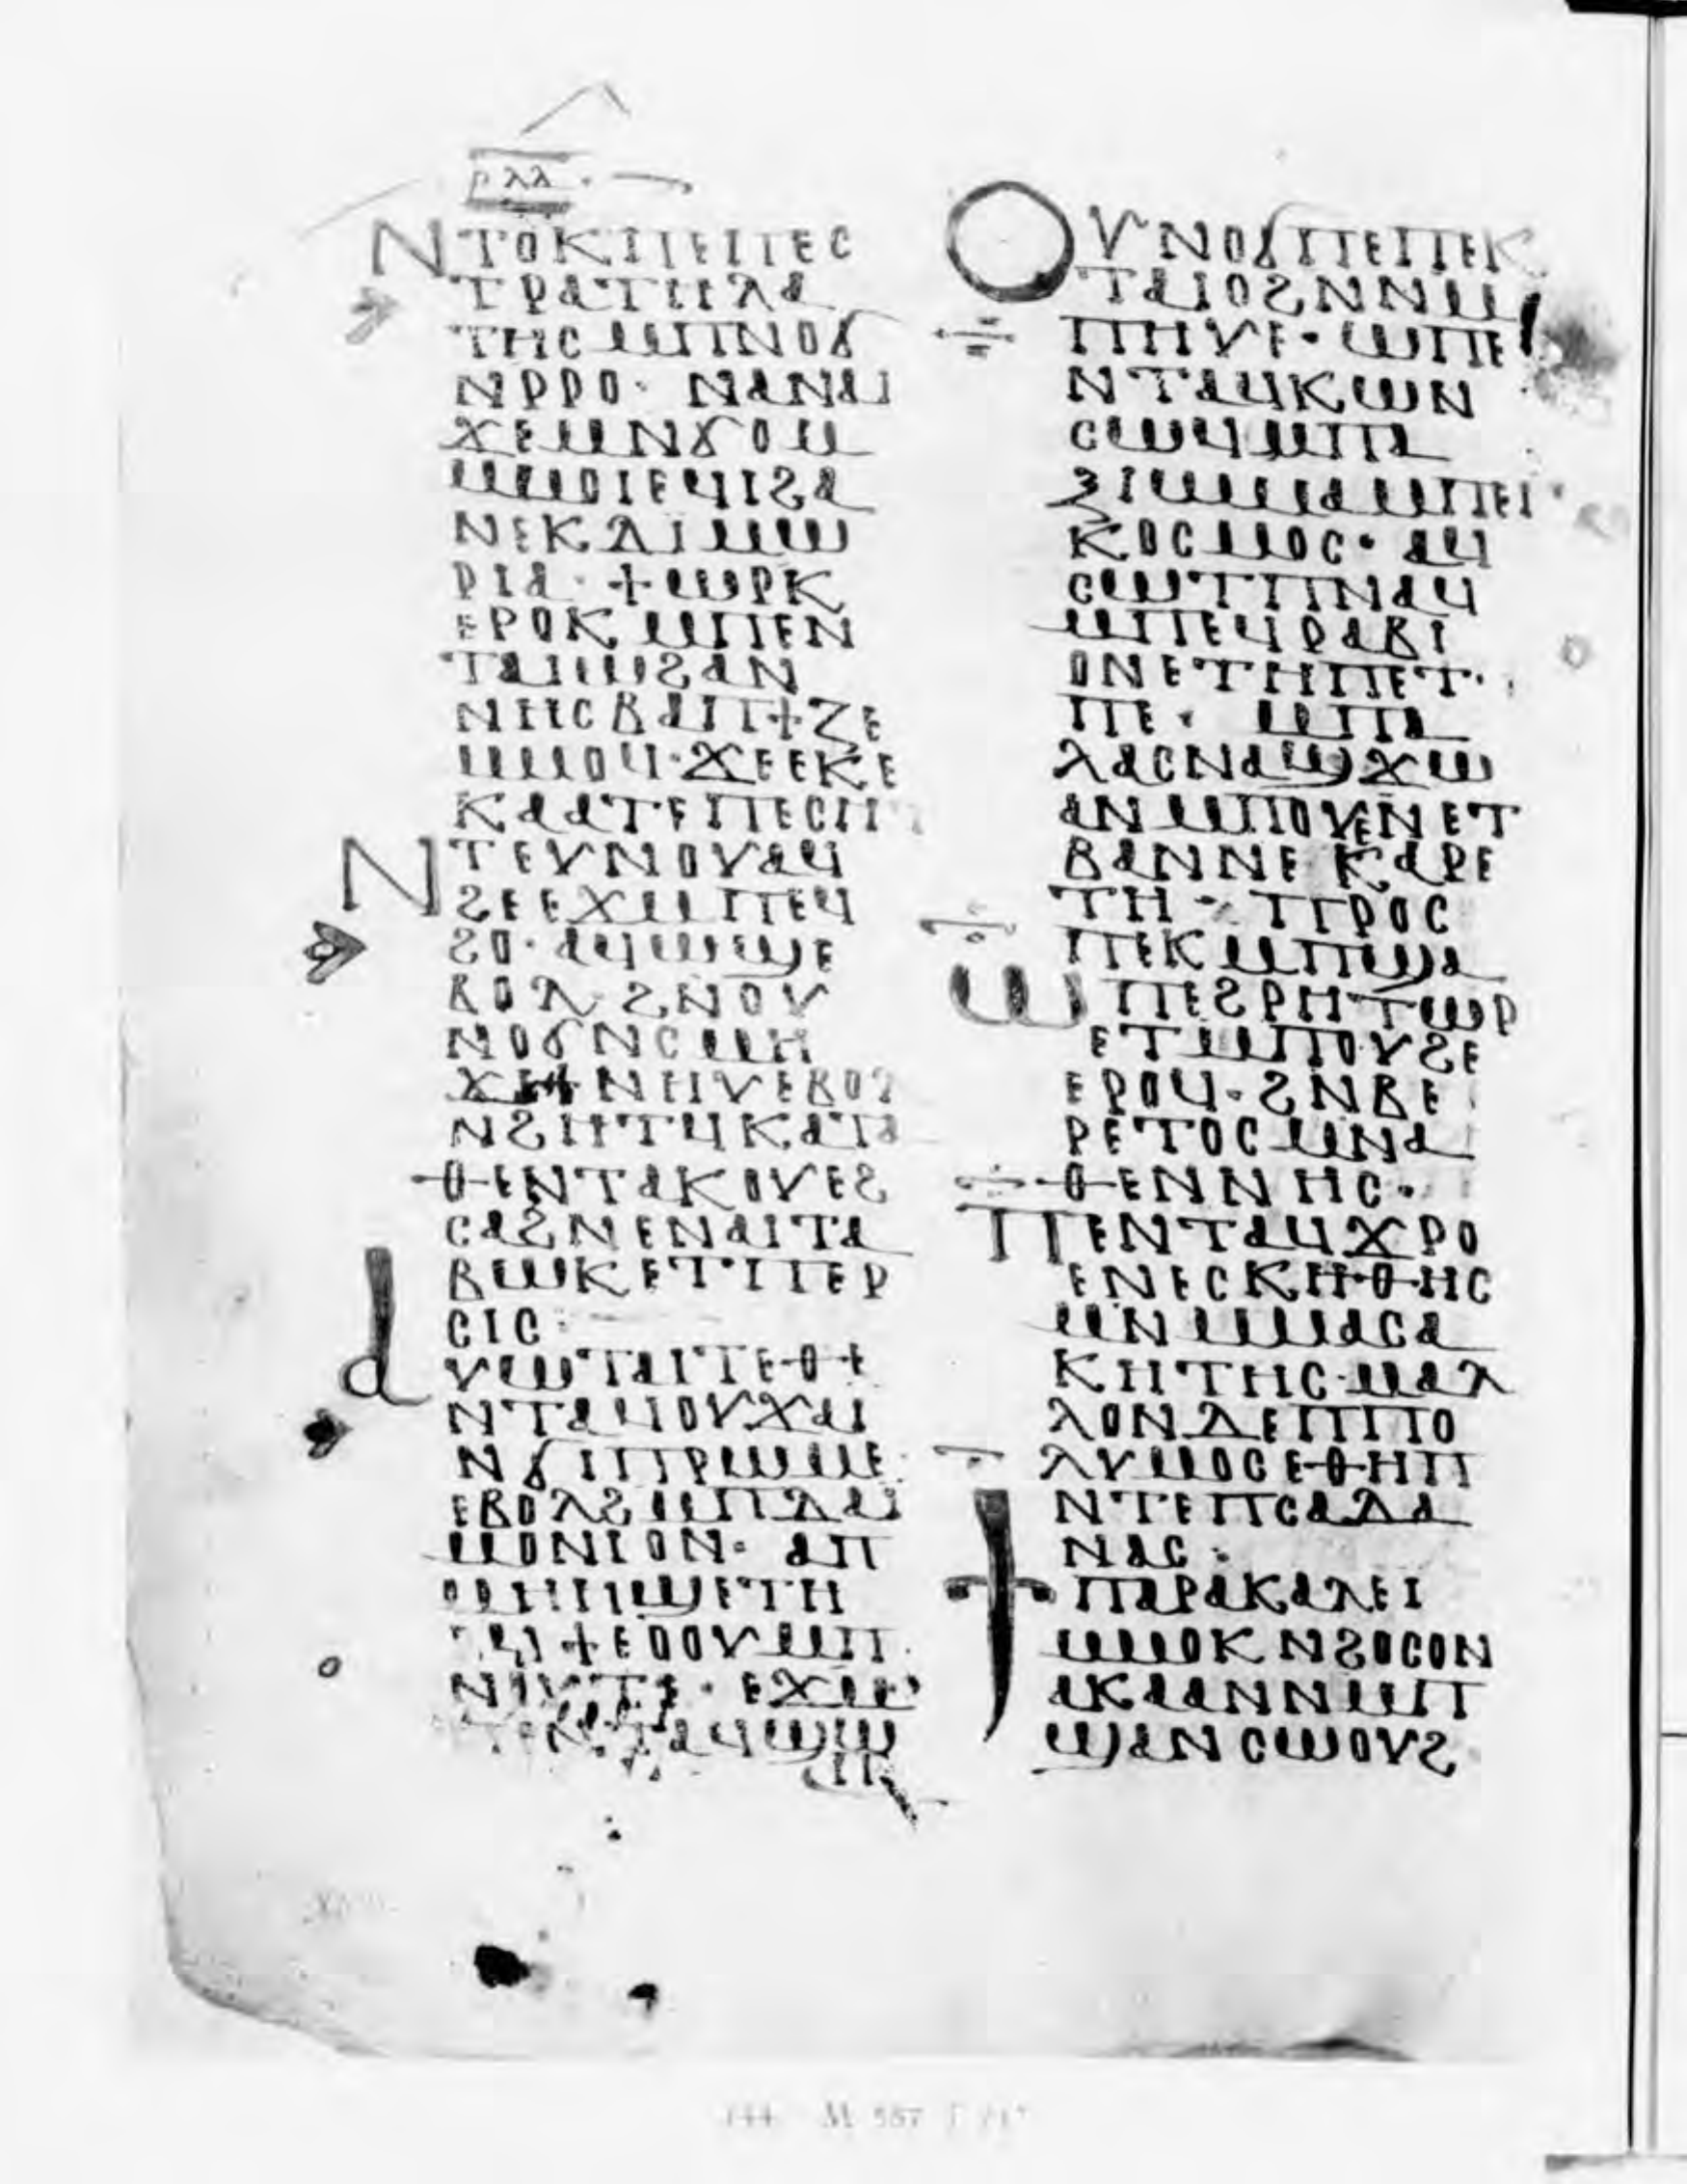 ⲣⲗⲁ
ⲚⲦⲞⲔⲠⲈⲠⲈⲤ
ⲦⲢⲀⲦⲎⲖⲀ
ⲦⲎⲤⲘⲠⲚⲞϬ
ⲚⲢⲢⲞ· ⲚⲀⲚⲀⲒ
ϪⲈⲘⲚϬⲞⲘ
ⲘⲘⲞⲒⲈϤⲒϨⲀ
ⲚⲈⲔⲀⲒⲘⲰ
ⲢⲒⲀ· ϮⲰⲢⲔ
ⲈⲢⲞⲔⲘⲠⲈⲚ
ⲦⲀⲒⲰϨⲀⲚ
ⲚⲎⲤⲂⲀⲠϮⲌⲈ
ⲘⲘⲞϤ·ϪⲈⲈⲔⲈ
ⲔⲀⲀⲦⲈⲠⲈⲤⲎ
ⲚⲦⲈⲨⲚⲞⲨⲀϤ
ϨⲈⲈϪⲘⲠⲈϤ
ϨⲞ· ⲀϤⲰϢⲈ
ⲂⲞⲖϨⲚⲞⲨ
ⲚⲞϬⲚⲤⲘⲎ
ⲚⲎⲨⲈⲂⲞⲖ
ⲚϨⲎⲦϤⲔⲀⲦⲀ
ⲐⲈⲚⲦⲀⲔⲞⲨⲈϨ
ⲤⲀϨⲚⲈⲚⲀⲒⲦⲀ
ⲂⲰⲔⲈⲦⲠⲈⲢ
ⲤⲒⲤ·
ⲀⲨⲰⲦⲀⲒⲦⲈⲐⲈ
ⲚⲦⲀϤⲞⲨϪⲀⲒ
ⲚϬⲒⲠⲢⲰⲘⲈ
ⲈⲂⲞⲖϨⲘⲠⲆⲀⲒ
ⲘⲞⲚⲒⲞⲚ· ⲀⲠ
ⲘⲎⲎϢⲈⲦⲎ
ⲢϤϮⲈⲞⲞⲨⲘⲠ
ⲚⲞⲨⲦⲈ· ⲈϪⲘ
ⲠⲈⲚⲦⲀϤϢⲰ
ⲠⲈ
ⲞⲨⲚⲞϬⲠⲈⲠⲈⲔ
ⲦⲀⲒⲞϨⲚⲘ
ⲠⲎⲨⲈ· ⲰⲠⲈ
ⲚⲦⲀϤⲔⲰⲚ
ⲤⲰϤⲘⲠⲀ
ⲜⲒⲰⲘⲀⲘⲠⲈⲒ
ⲔⲞⲤⲘⲞⲤ· ⲀϤ
ⲤⲰⲦⲠⲚⲀϤ
ⲘⲠⲈϤⲢⲀⲂⲒ
ⲞⲚⲈⲦⲎⲠⲈⲦ
ⲠⲈ· ⲘⲠⲀ
ⲖⲀⲤⲚⲀϢϪⲰ
ⲀⲚⲘⲠⲞⲨⲈⲚⲈⲦ
ⲂⲀⲚⲚⲈⲔⲀⲢⲈ
ⲦⲎ· ⲠⲢⲞⲤ
ⲠⲈⲔⲘⲠϢⲀ
ⲰⲠⲈϨⲢⲎⲦⲰⲢ
ⲈⲦⲘⲠⲞⲨϨⲈ
ⲈⲢⲞϤ·ϨⲚⲂⲈ
ⲢⲈⲦⲞⲤⲘⲚⲀ
ⲐⲈⲚⲚⲎⲤ·
ⲠⲈⲚⲦⲀϤϪⲢⲞ
ⲈⲚⲈⲤⲔⲎⲐⲎⲤ
ⲘⲚⲘⲘⲀⲤⲀ
ⲔⲎⲦⲎⲤ·ⲘⲀⲖ
ⲖⲞⲚⲆⲈⲠⲠⲞ
ⲖⲨⲘⲞⲤⲈⲐⲎⲠ
ⲚⲦⲈⲠⲤⲀⲆⲀ
ⲚⲀⲤ·
ϮⲠⲀⲢⲀⲔⲀⲖⲈⲒ
ⲘⲘⲞⲔⲚϨⲞⲤⲞⲚ
ⲀⲔⲀⲀⲚⲚⲘⲠ
ϢⲀⲚⲤⲰⲞⲨϨ